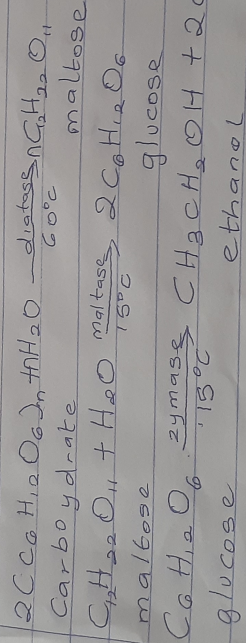 2(C6H12O6)n + nH2O diatase 60°C nC12H22O11
Carboydrate maltose
C12H22O11 + H2O maltase 15°C 2C6H12O6
maltose glucose
C6H12O6 zymase 15°C CH3CH2OH + 2C
glucose ethanol